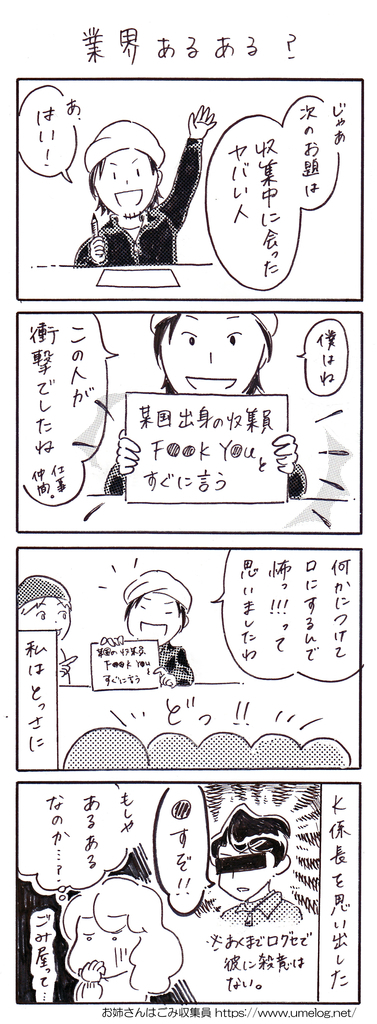 業界あるある？
じゃあ
次のお題は
収集中に会った
ヤバい人
あ、
はい！
僕はね
某国出身の収集員
F●●K Y●uと
すぐに言う
この人が
衝撃でしたね
仕事
仲間。
何かにつけて
口にするんで
怖っ!!!って
思いましたわ
某国の収集員
F●●K You と
すぐに言う
どっ!!
私はとっさに
K係長を思い出した
●すぞ!!
※あくまで口グセで
彼に殺意は
ない。
もしや
あるある
なのか…？
ごみ屋って…
お姉さんはごみ収集員 https://www.umelog.net/